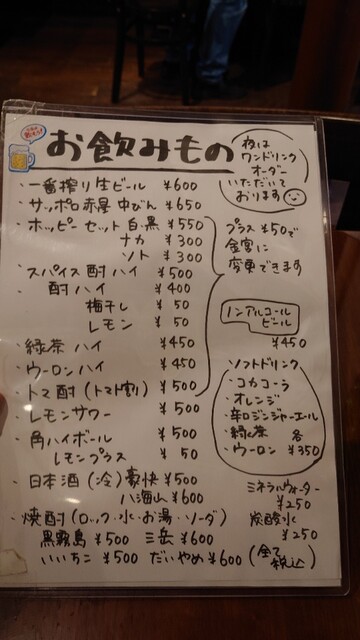 お飲みもの
夜は
ワンドリンク
オーダー
いただいて
おります
・一番搾り生ビール ¥600
・サッポロ赤星 中びん ¥650
・ホッピーセット 白・黒 ¥550
ナカ ¥300
ソト ¥300
・スパイス酎ハイ ¥500
・酎ハイ ¥400
梅干し ¥50
レモン ¥50
・緑茶ハイ ¥450
・ウーロンハイ ¥450
・トマ酎(トマト割) ¥500
・レモンサワー ¥500
・角ハイボール ¥500
レモンプラス ¥50
・日本酒(冷) 豪快 ¥500
八海山 ¥600
・焼酎(ロック・水・お湯・ソーダ)
黒霧島 ¥500 三岳 ¥600
いいちこ ¥500 だいやめ ¥600
(全て税込)
プラス¥50で
金宮に
変更できます
ノンアルコール
ビール
¥450
ソフトドリンク
・コカコーラ
・オレンジ
・辛口ジンジャーエール
・緑茶 各
・ウーロン ¥350
ミネラルウォーター
¥250
炭酸水
¥250